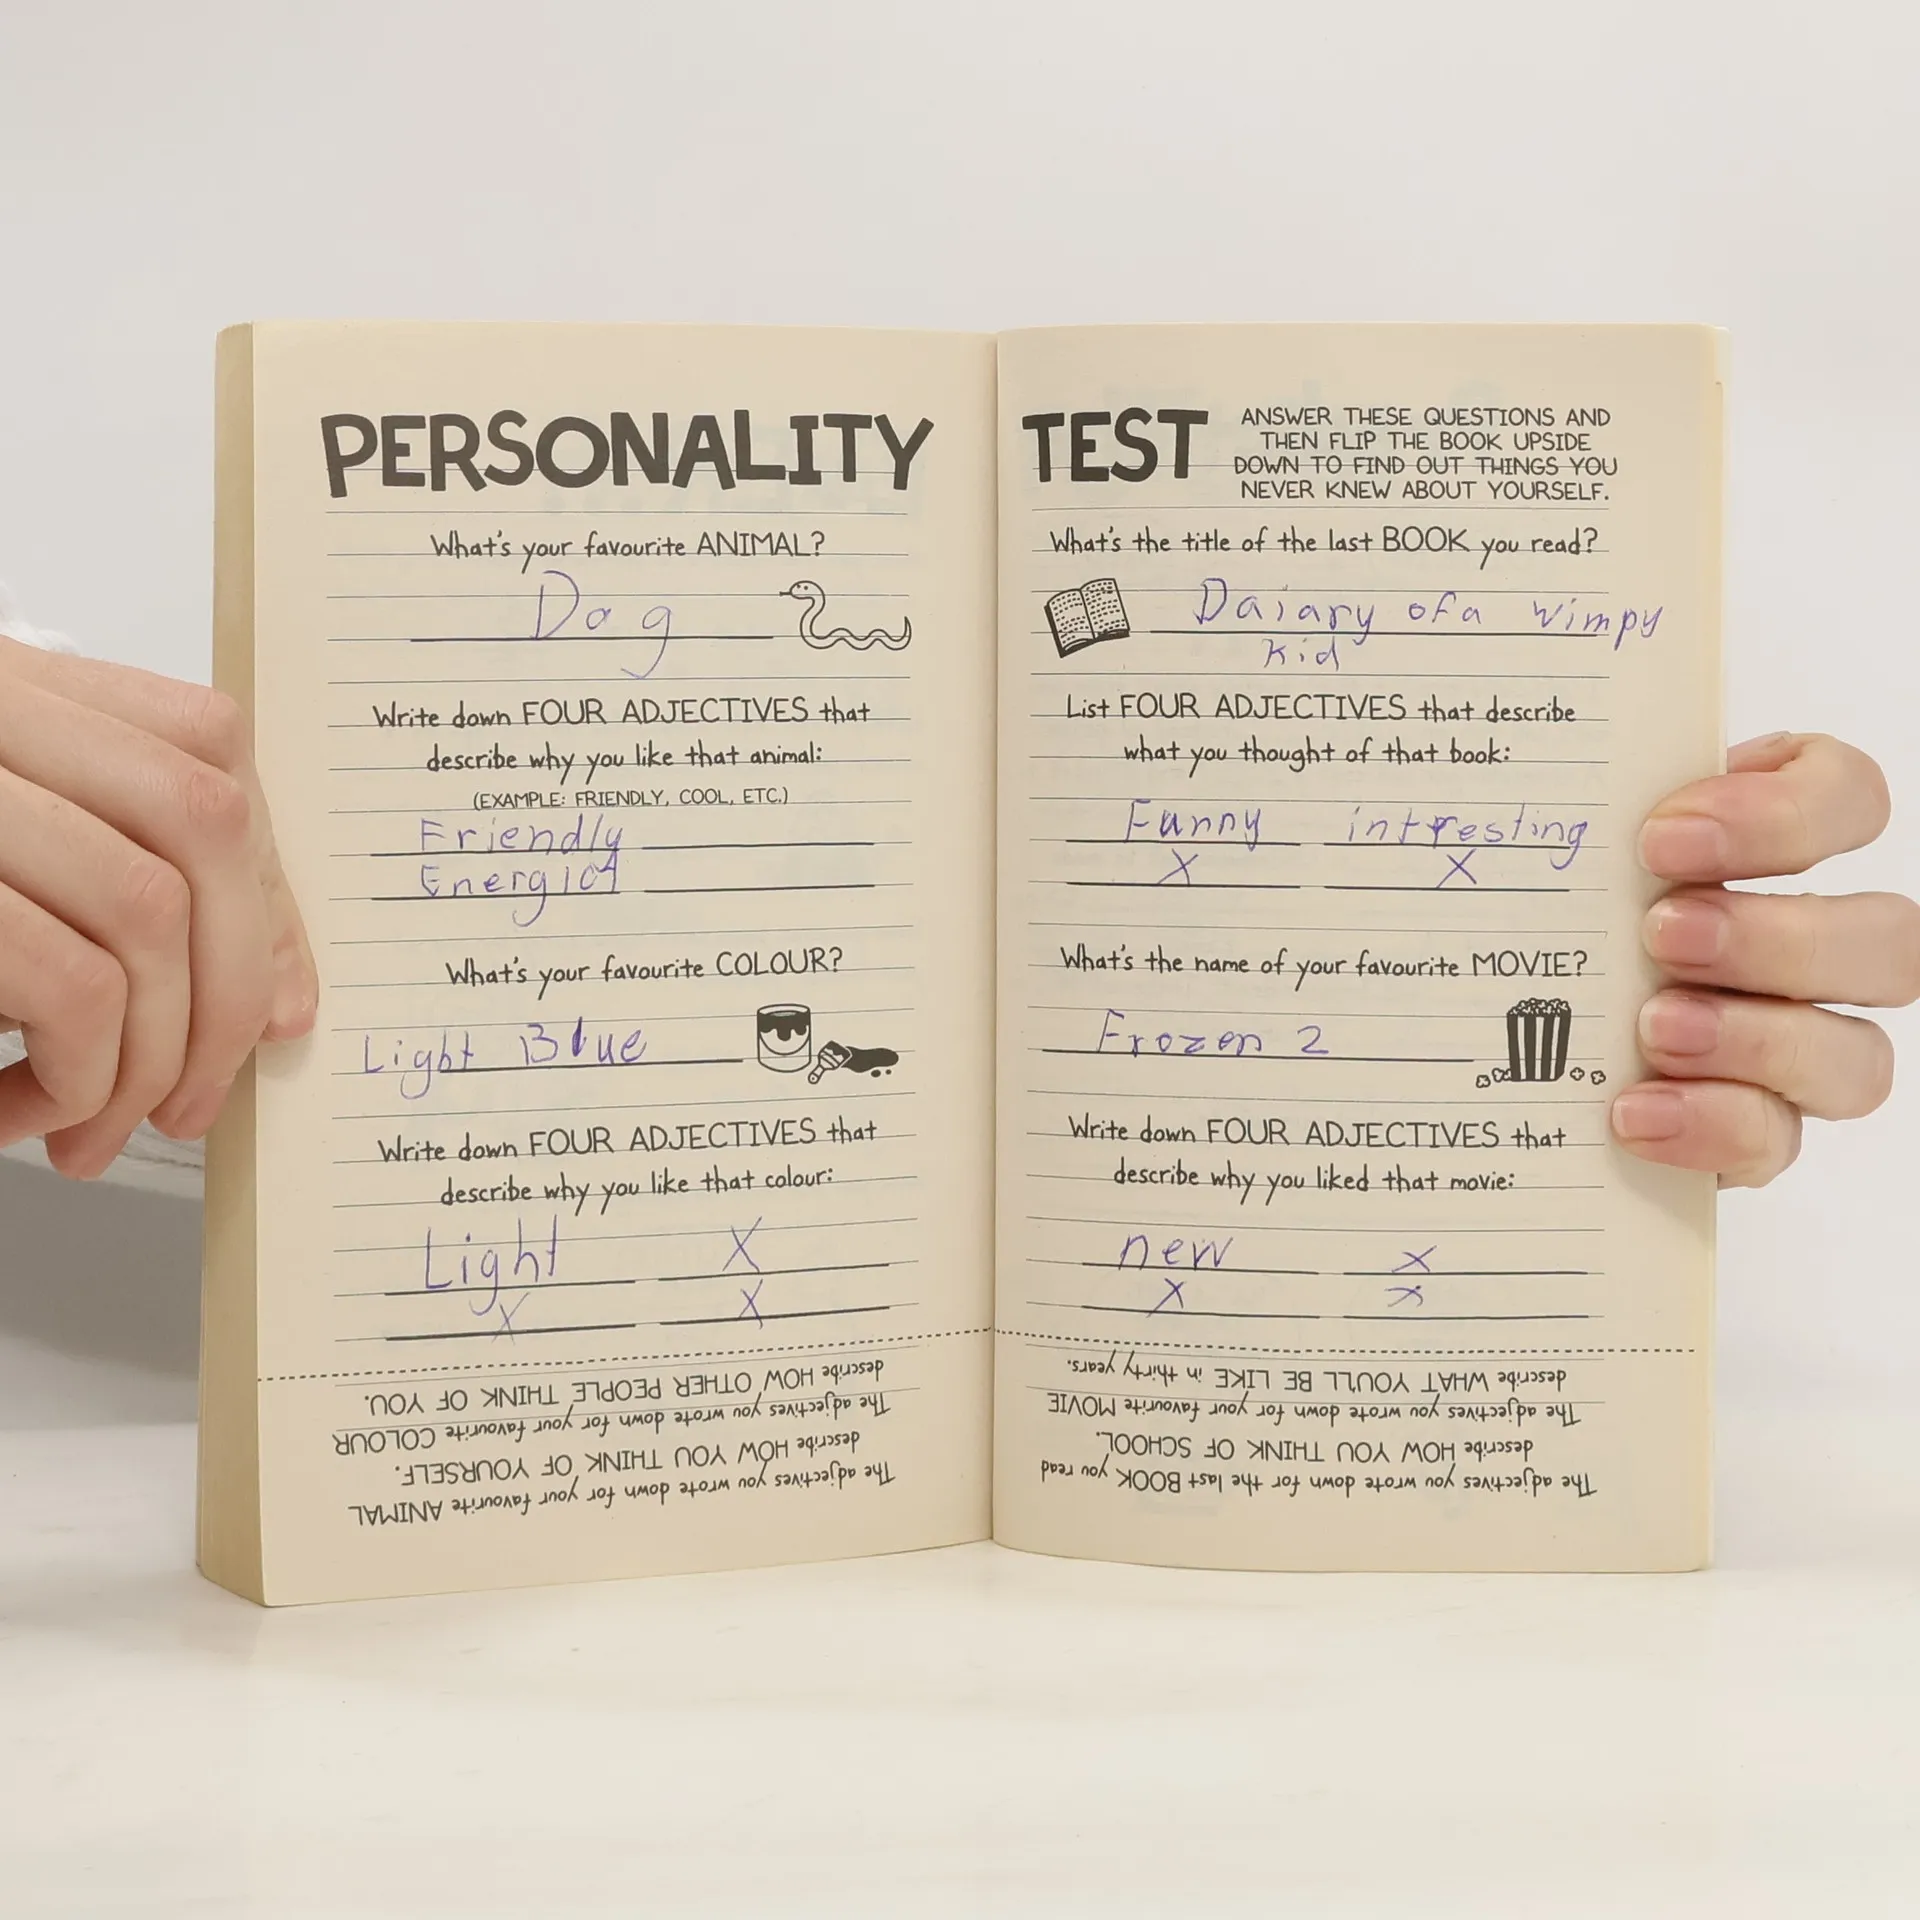 PERSONALITY
What's your favourite ANIMAL?
Dog
Write down FOUR ADJECTIVES that
describe why you like that animal:
(EXAMPLE: FRIENDLY, COOL, ETC.)
Friendly
What's your favourite COLOUR?
Light Blue
Write down FOUR ADJECTIVES that
describe why you like that colour:
Light X
X X
The adjectives you wrote down for your favourite ANIMAL
describe HOW YOU THINK OF YOURSELF.
The adjectives you wrote down for your favourite COLOUR
describe HOW OTHER PEOPLE THINK OF YOU.
TEST
ANSWER THESE QUESTIONS AND
THEN FLIP THE BOOK UPSIDE
DOWN TO FIND OUT THINGS YOU
NEVER KNEW ABOUT YOURSELF.
What's the title of the last BOOK you read?
Daiary of a Wimpy
Kid
List FOUR ADJECTIVES that describe
what you thought of that book:
Funny intresting
X X
What's the name of your favourite MOVIE?
Frozen 2
Write down FOUR ADJECTIVES that
describe why you liked that movie:
new X
X X
The adjectives you wrote down for the last BOOK you read
describe HOW YOU THINK OF SCHOOL.
The adjectives you wrote down for your favourite MOVIE
describe WHAT YOU'LL BE LIKE in thirty years.